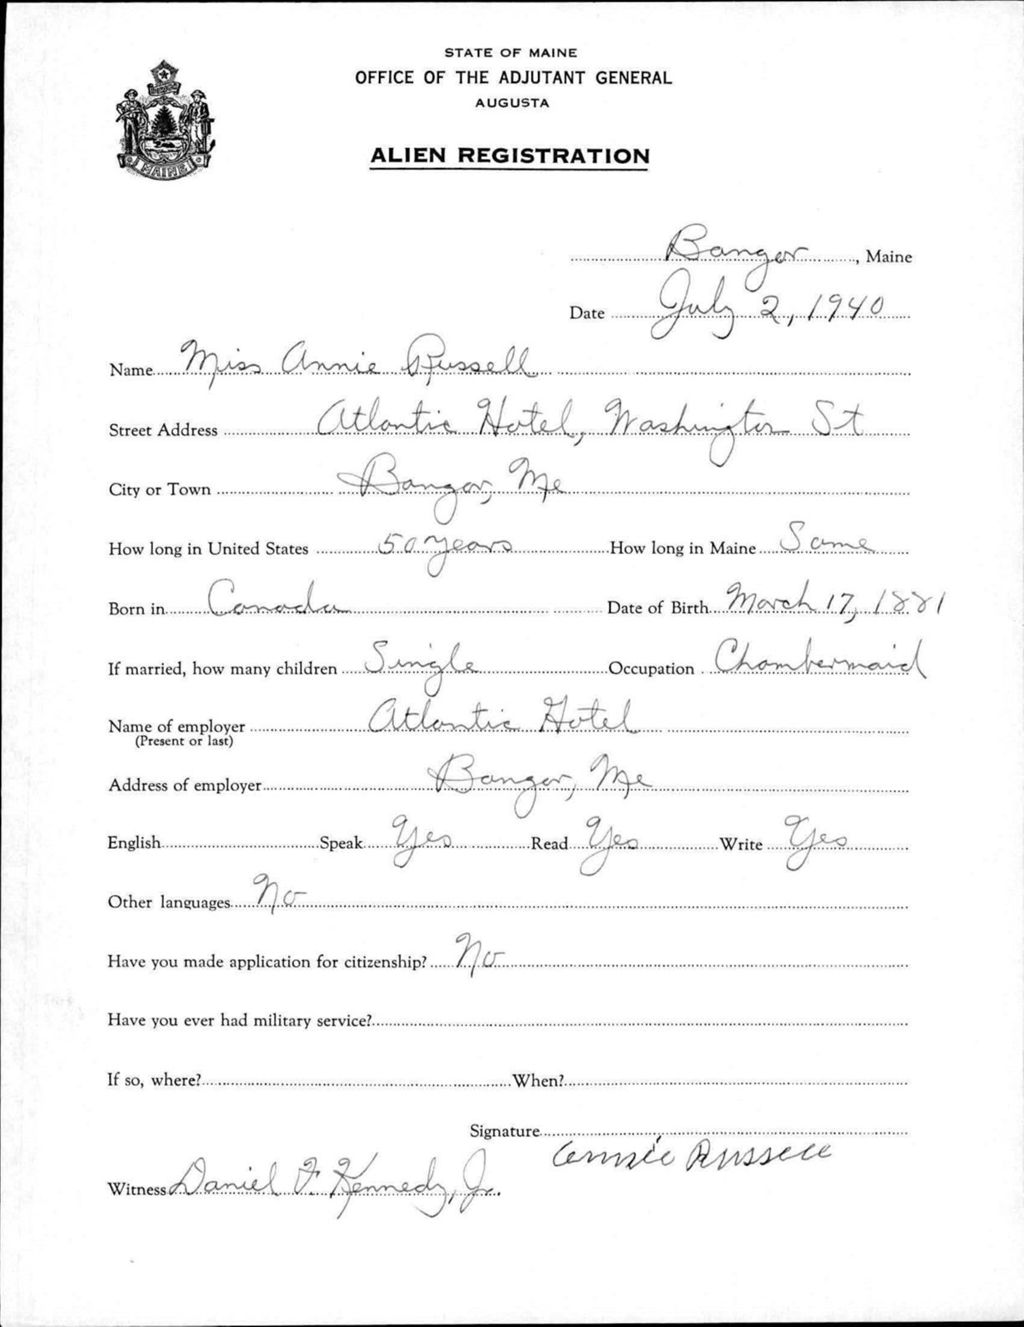 STATE OF MAINE
OFFICE OF THE ADJUTANT GENERAL
AUGUSTA
ALIEN REGISTRATION
MAINE
Bangor, Maine
Date July 2, 1940
Name Miss Annie Russell
Street Address Atlantic Hotel, Washington St
City or Town Bangor, Me
How long in United States 50 years How long in Maine Same
Born in Canada Date of Birth March 17, 1881
If married, how many children Single Occupation Chambermaid
Name of employer Atlantic Hotel
(Present or last)
Address of employer Bangor, Me
English Speak Yes Read Yes Write Yes
Other languages No
Have you made application for citizenship? No
Have you ever had military service?
If so, where? When?
Signature Annie Russell
Witness Daniel F. Kennedy, Jr.